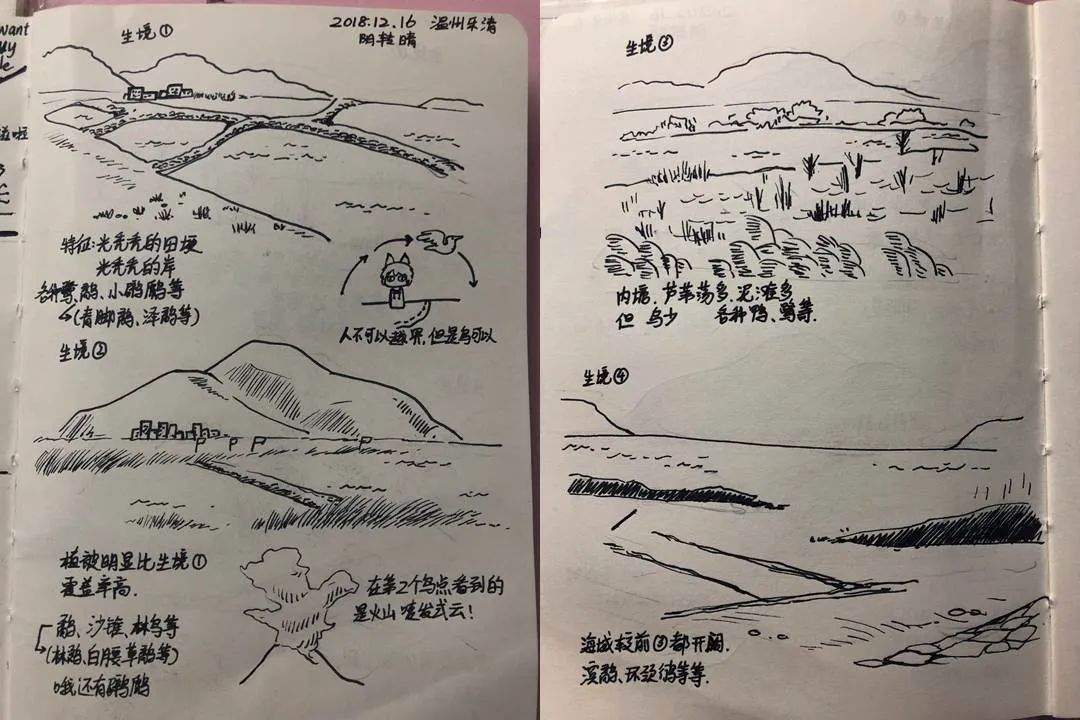 want
2018.12.16 温州乐清
阴转晴
生境①
特征:光秃秃的田埂
光秃秃的岸
各种鹭、鹬、小䴙䴘等
(青脚鹬、泽鹬等)
人不可以越界,但是鸟可以
生境②
植被明显比生境①
覆盖率高.
鹬、沙锥、林鸟等
(林鹬、白腰草鹬等)
哦还有䴙䴘
在第2个鸟点看到的
是火山喷发式云!
生境③
内塘.芦苇荡多.泥滩多
但 鸟少 各种鸭、鹭等.
生境④
海域较前③都开阔.
滨鹬、环颈鸻等等.